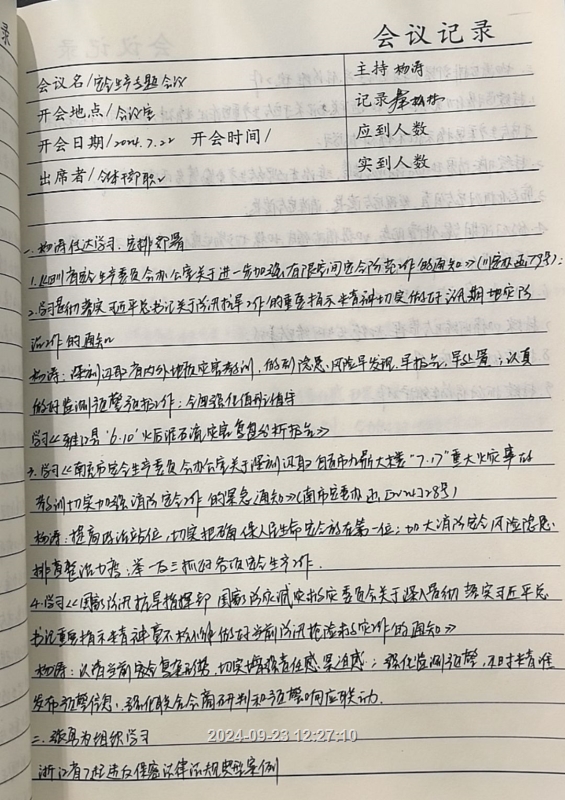 会议记录
会议名/安全生产专题会议
主持 杨涛
开会地点/会议室
记录
开会日期/2024.7.22 开会时间/
应到人数
出席者/全体干部职工
实到人数
一、杨涛传达学习、安排部署
1.《四川省安全生产委员会办公室关于进一步加强有限空间安全防范工作的通知》(川安办函79号);
2.学习贯彻落实习近平总书记关于防汛抗旱工作的重要指示精神切实做好汛期地灾防
治工作的通知
杨涛：深刻汲取省内外地质灾害教训，做到隐患、风险早发现、早报告、早处置；认真
做好监测预警预报工作；全面强化值班值守
学习《雅江县"6.10"火后泥石流灾害复盘分析报告》
3.学习《南充市安全生产委员会办公室关于深刻汲取自贡市九鼎大楼"7.17"重大火灾事故
教训切实加强消防安全工作的紧急通知》(南市安委办函[2024]28号)
杨涛：提高政治站位，切实把确保人民生命安全放在第一位；加大消防安全风险隐患
排查整治力度；举一反三抓好各项安全生产工作.
4.学习《国家防汛抗旱指挥部 国家防灾减灾救灾委员会关于深入贯彻落实习近平总
书记重要指示精神毫不松懈做好当前防汛抢险救灾工作的通知》
杨涛：认清当前安全复杂形势，切实增强责任感紧迫感；强化监测预警，及时精准
发布预警信息、强化联合会商研判和预警响应联动.
二、组织学习
浙江省7起违反保密法律法规典型案例
2024-09-23 12:27:10